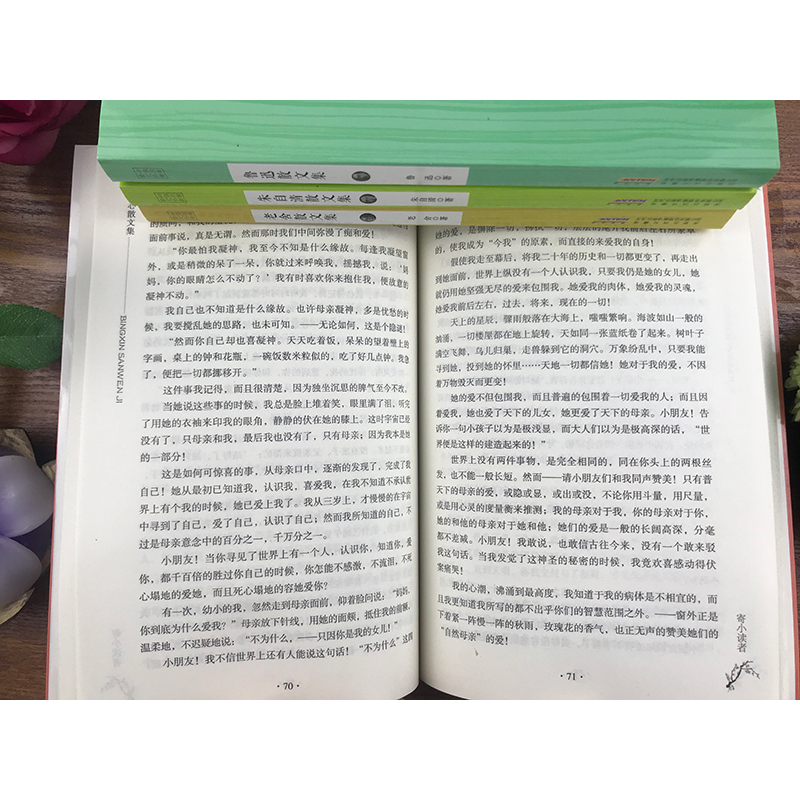 鲁迅散文集
鲁 迅◎著
朱自清散文集
朱自清◎著
老舍散文集
老 舍◎著
心散文集
BINGXIN SANWEN JI
面前事说,真是无谓。然而那时我们中间弥漫了痴和爱!
“你最怕我凝神,我至今不知是什么缘故。每逢我凝望窗
外,或是稍微的呆了一呆,你就过来呼唤我,摇撼我,说:‘妈
妈,你的眼睛怎么不动了?’我有时喜欢你来抱住我,便故意的
凝神不动。”
我自己也不知道是什么缘故。也许母亲凝神,多是忧愁的时
候,我要搅乱她的思路,也未可知。——无论如何,这是个隐谜!
“然而你自己却也喜凝神。天天吃着饭,呆呆的望着壁上的
字画,桌上的钟和花瓶,一碗饭数米粒似的,吃了好几点钟。我急
了,便把一切都挪移开。”
这件事我记得,而且很清楚,因为独坐沉思的脾气至今不改。
当她说这些事的时候,我总是脸上堆着笑,眼里满了泪,听完
了用她的衣袖来印我的眼角,静静的伏在她的膝上。这时宇宙已经
没有了,只母亲和我,最后我也没有了,只有母亲;因为我本是她
的一部分!
这是如何可惊喜的事,从母亲口中,逐渐的发现了,完成了我
自己!她从最初已知道我,认识我,喜爱我,在我不知道不承认世
界上有个我的时候,她已爱上了我了。我从三岁上,才慢慢的在宇宙
中寻到了自己,爱了自己,认识了自己;然而我所知道的自己,不
过是母亲意念中的百分之一,千万分之一。
小朋友!当你寻见了世界上有一个人,认识你,知道你,爱
你,都千百倍的胜过你自己的时候,你怎能不感激,不流泪,不死
心塌地的爱她,而且死心塌地的容她爱你?
有一次,幼小的我,忽然走到母亲面前,仰着脸问说:“妈妈,
你到底为什么爱我?”母亲放下针线,用她的面颊,抵住我的前额,
温柔地,不迟疑地说:“不为什么,——只因你是我的女儿!”
小朋友!我不信世界上还有人能说这句话!“不为什么”这四
· 70 ·
成的,使我成为“今我”的原素,而直接的来爱我的自身!
假使我走至幕后,将我二十年的历史和一切都更变了,再走出
到她面前,世界上纵没有一个人认识我,只要我仍是她的女儿,她
就仍用她坚强无尽的爱来包围我。她爱我的肉体,她爱我的灵魂,
她爱我前后左右,过去,将来,现在的一切!
天上的星辰,骤雨般落在大海上,嗤嗤繁响。海波如山一般的
汹涌,一切楼屋都在地上旋转,天如同一张蓝纸卷了起来。树叶子
满空飞舞,鸟儿归巢,走兽躲到它的洞穴。万象纷乱中,只要我能
寻到她,投到她的怀里……天地一切都信她!她对于我的爱,不因
着万物毁灭而更变!
她的爱不但包围我,而且普遍的包围着一切爱我的人;而且因
着爱我,她也爱了天下的儿女,她更爱了天下的母亲。小朋友!告
诉你一句小孩子以为是极浅显,而大人们以为是极高深的话,“世
界便是这样的建造起来的!”
世界上没有两件事物,是完全相同的,同在你头上的两根丝
发,也不能一般长短。然而——请小朋友们和我同声赞美!只有普
天下的母亲的爱,或隐或显,或出或没,不论你用斗量,用尺量,
或是用心灵的度量衡来推测;我的母亲对于我,你的母亲对于你,
她的和他的母亲对于她和他;她们的爱是一般的长阔高深,分毫
都不差减。小朋友!我敢说,也敢信古往今来,没有一个敢来驳
我这句话。当我发觉了这神圣的秘密的时候,我竟欢喜感动得伏
案痛哭!
我的心潮,沸涌到最高度,我知道于我的病体是不相宜的,而
且我更知道我所写的都不出乎你们的智慧范围之外。——窗外正是
下着紧一阵慢一阵的秋雨,玫瑰花的香气,也正无声的赞美她们的
“自然母亲”的爱!
· 71 ·
寄小读者